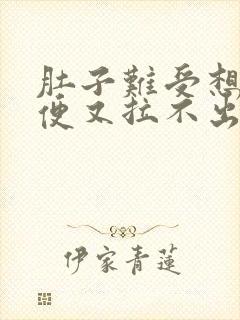 肚子難受想
便又拉不出
伊家青蓮